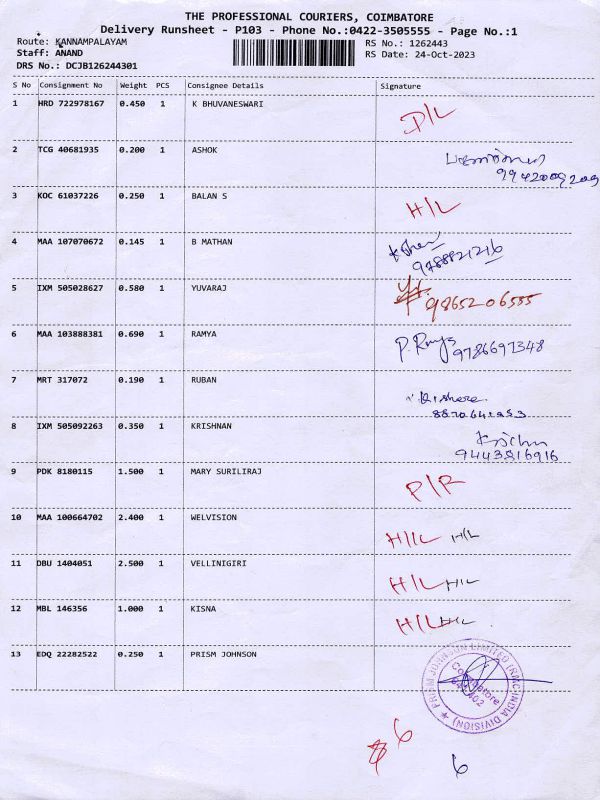 THE PROFESSIONAL COURIERS, COIMBATORE
Delivery Runsheet - P103 - Phone No.:0422-3505555 - Page No.:1
Route: KANNAMPALAYAM RS No.: 1262443
Staff: ANAND RS Date: 24-Oct-2023
DRS No.: DCJB126244301
S No Consignment No Weight PCS Consignee Details Signature
1 HRD 722978167 0.450 1 K BHUVANESWARI D/L
2 TCG 40681935 0.200 1 ASHOK
9942009209
3 KOC 61037226 0.250 1 BALAN S H/L
4 MAA 107070672 0.145 1 B MATHAN
9788821216
5 IXM 505028627 0.580 1 YUVARAJ 9865206555
6 MAA 103888381 0.690 1 RAMYA P. Ramya 9786697348
7 MRT 317072 0.190 1 RUBAN
Kishore
8 IXM 505092263 0.350 1 KRISHNAN
9443816916
9 PDK 8180115 1.500 1 MARY SURILIRAJ P/R
10 MAA 100664702 2.400 1 WELVISION H/L H/L
11 DBU 1404051 2.500 1 VELLINIGIRI H/L H/L
12 MBL 146356 1.000 1 KISNA H/L H/L
13 EDQ 22282522 0.250 1 PRISM JOHNSON
PRISM JOHNSON LIMITED (RMC INDIA DIVISION)
Coimbatore
641 402
6
6